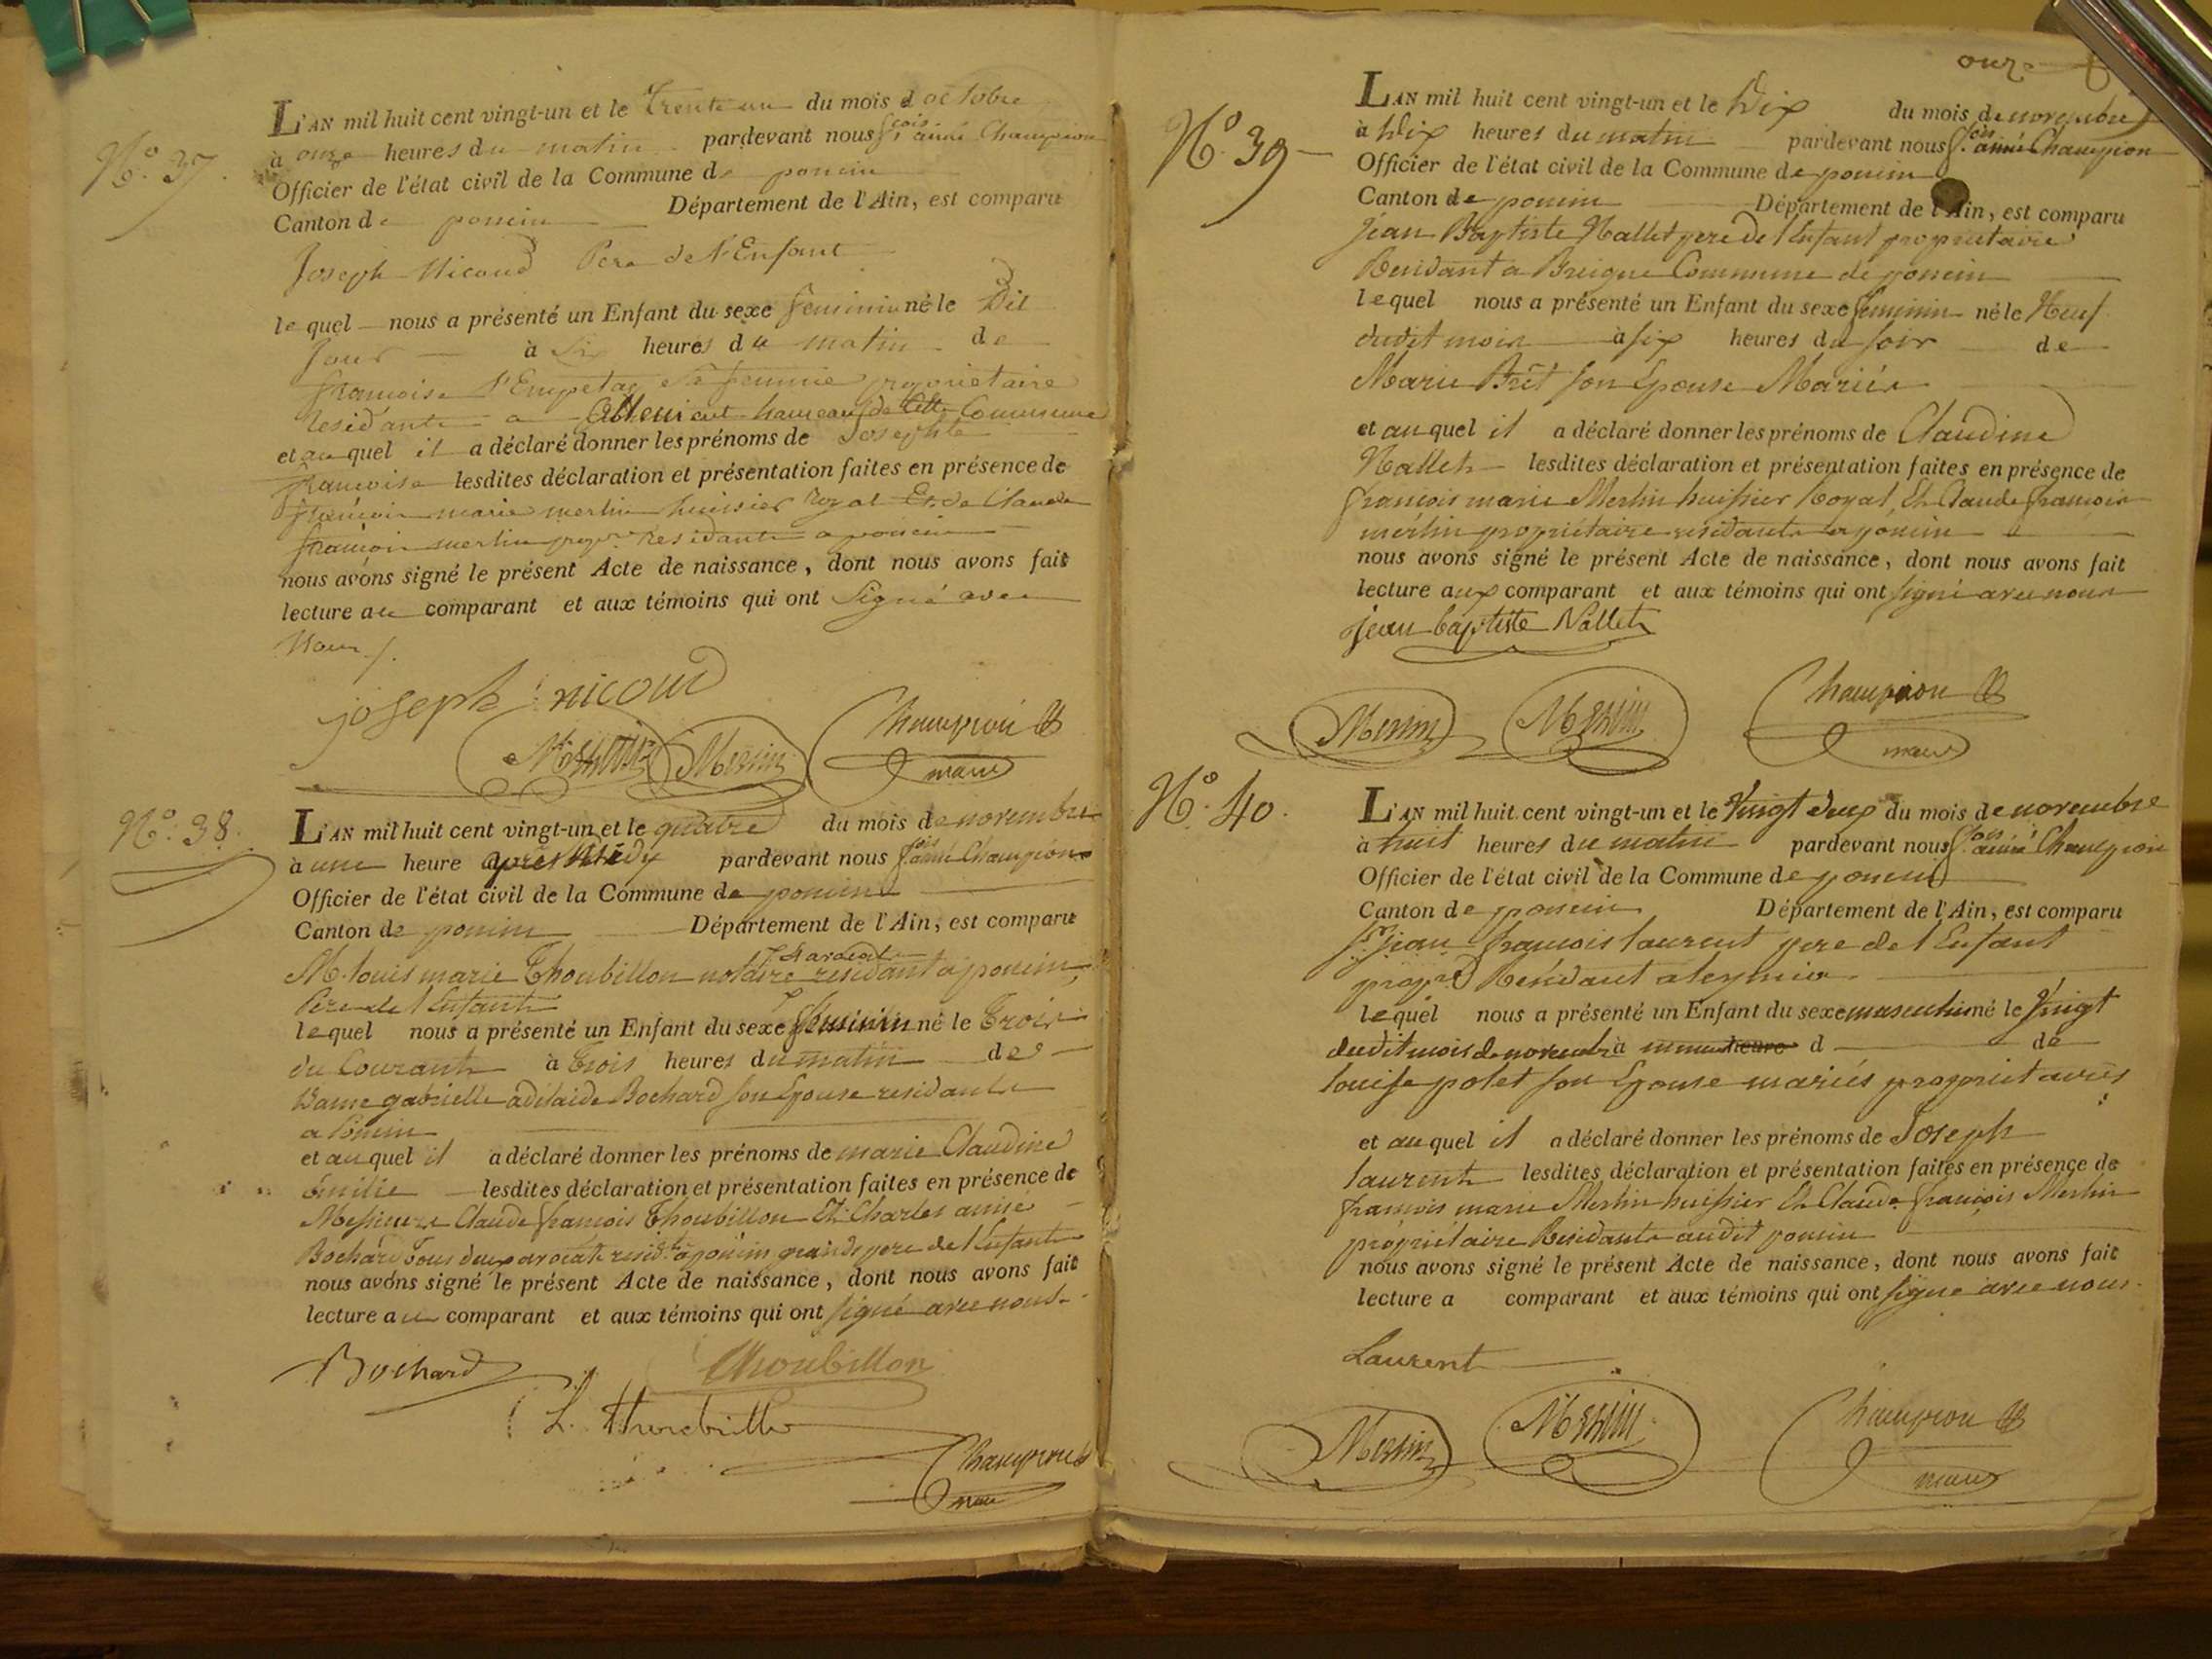 N.° 37.
L'AN mil huit cent vingt-un et le Trente un du mois d'octobre
à onze heures du matin pardevant nous f.cois aimé Champion
Officier de l'état civil de la Commune de poncin
Canton de poncin Département de l'Ain, est comparu
Joseph Nicoud Pere de l'Enfant
lequel nous a présenté un Enfant du sexe feminin né le Dit
Jour à Six heures du matin de
françoise sa femme proprietaire
residante a hameau de Cette Commune
et auquel il a déclaré donner les prénoms de Josephte
francoise lesdites déclaration et présentation faites en présence de
françois marie merlin huissier Royal Et de Claude
françois merlin propre Residants a poncin
nous avons signé le présent Acte de naissance, dont nous avons fait
lecture au comparant et aux témoins qui ont Signé avec
Nous ./.
joseph nicoud
Merlin Merlin Champion
maire
N.° 38.
L'AN mil huit cent vingt-un et le quatre du mois de novembre
à une heure après Midy pardevant nous f.cois aimé Champion
Officier de l'état civil de la Commune de poncin
Canton de poncin Département de l'Ain, est comparu
M. louis marie Thoubillon notaire residant a poncin
Pere de l'Enfant
lequel nous a présenté un Enfant du sexe feminin né le Trois
du Courant à trois heures du matin de
Dame gabrielle adelaide Bochard son Epouse residante
a Poncin
et auquel il a déclaré donner les prénoms de marie Claudine
Emilie lesdites déclaration et présentation faites en présence de
Messieurs Claude françois Thoubillon Et Charles aimé
Bochard Tous deux avocats resid.ts a poncin grands pere de l'Enfant
nous avons signé le présent Acte de naissance, dont nous avons fait
lecture au comparant et aux témoins qui ont signé avec nous
Bochard Thoubillon
L. Thoubillon
Champion
maire
onze
N.° 39
L'AN mil huit cent vingt-un et le Dix du mois de novembre
à Dix heures du matin pardevant nous f.cois aimé Champion
Officier de l'état civil de la Commune de poncin
Canton de poncin Département de l'Ain, est comparu
Jean Baptiste Nallet pere de l'Enfant proprietaire
Residant a Breigne Commune de poncin
lequel nous a présenté un Enfant du sexe feminin né le Neuf
dudit mois à six heures du soir de
Marie Bret son Epouse Mariés
et auquel il a déclaré donner les prénoms de Claudine
Nallet lesdites déclaration et présentation faites en présence de
françois marie Merlin huissier Royal, Et Claude françois
merlin propriétaire residants a poncin
nous avons signé le présent Acte de naissance, dont nous avons fait
lecture aux comparant et aux témoins qui ont signé avec nous
jean baptiste Nallet
Merlin Merlin Champion
maire
N.° 40.
L'AN mil huit cent vingt-un et le Vingt deux du mois de novembre
à huit heures du matin pardevant nous f.cois aimé Champion
Officier de l'état civil de la Commune de poncin
Canton de poncin Département de l'Ain, est comparu
S.r jean françois laurent pere de l'Enfant
prop.re Residant a leymia
lequel nous a présenté un Enfant du sexe masculin né le Vingt
dudit mois de novembre à minuit heure d de
louise polet son Epouse mariés proprietaires
et auquel il a déclaré donner les prénoms de Joseph
laurent lesdites déclaration et présentation faites en présence de
françois marie Merlin huissier Et Claude françois Merlin
propriétaire Residants audit poncin
nous avons signé le présent Acte de naissance, dont nous avons fait
lecture a comparant et aux témoins qui ont signé avec nous.
Laurent
Merlin Merlin Champion
maire